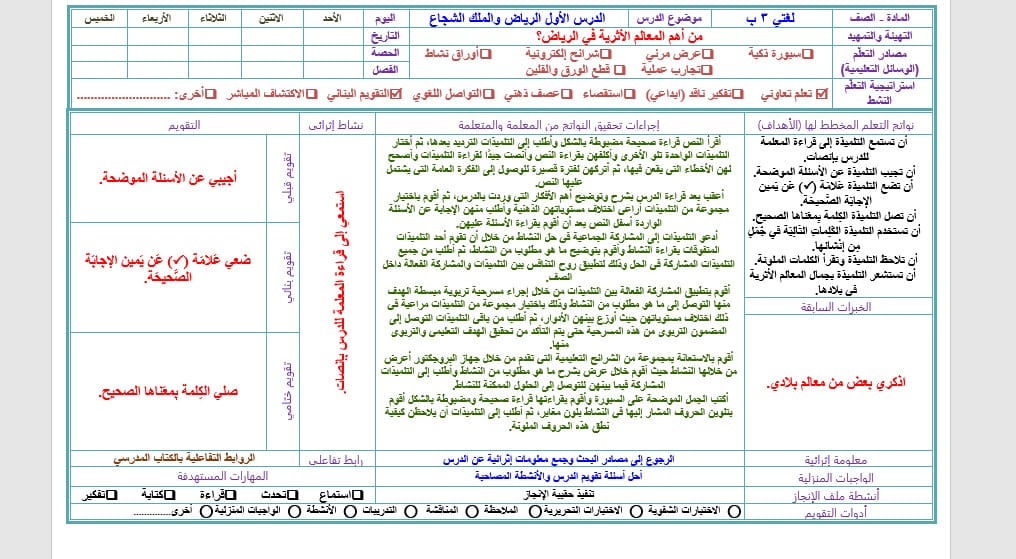 المادة - الصف
لغتي ٣ ب
موضوع الدرس
الدرس الأول الرياض والملك الشجاع
اليوم
الأحد
الاثنين
الثلاثاء
الأربعاء
الخميس
التهيئة والتمهيد
من أهم المعالم الأثرية في الرياض؟
التاريخ
مصادر التعلّم
(الوسائل التعليمية)
❑سبورة ذكية ❑عرض مرئي ❑شرائح إلكترونية ❑أوراق نشاط
❑تجارب عملية ❑ قطع الورق والفلين
الحصة
الفصل
استراتيجية التعلّم
النشط
☑ تعلم تعاوني ❑تفكير ناقد (ابداعي) ❑استقصاء ❑عصف ذهني ❑التواصل اللغوي ☑التقويم البنائي ❑الاكتشاف المباشر ❑أخرى: ...........................
نواتج التعلم المخطط لها (الأهداف)
إجراءات تحقيق النواتج من المعلمة والمتعلمة
نشاط إثرائي
التقويم
أن تستمع التلميذة إلى قراءة المعلمة
للدرس بإنصات.
أن تجيب التلميذة عن الأسئلة الموضحة.
أن تضع التلميذة عَلامَة (✓) عَن يَمين
الإجابَة الصَّحيحَة.
أن تصل التلميذة الكلمة بِمعْناها الصحيح.
أن تستخدم التلميذة الكَلِمات التَّالِيَة في جُمَلٍ
مِن إنْشائِها.
أن تلاحظ التلميذة وتقرأ الكلمات الملونة.
أن تستشعر التلميذة بجمال المعالم الأثرية
في بلادها.
الخبرات السابقة
اذكري بعض من معالم بلادي.
أقرأ النص قراءة صحيحة مضبوطة بالشكل وأطلب إلى التلميذات الترديد بعدها، ثم أختار
التلميذات الواحدة تلو الأخرى وأكلفهن بقراءة النص وأنصت جيدًا لقراءة التلميذات وأصحح
لهن الأخطاء التي يقعن فيها، ثم أتركهن لفترة قصيرة للوصول إلى الفكرة العامة التي يشتمل
عليها النص.
أعقب بعد قراءة الدرس بشرح وتوضيح أهم الأفكار التي وردت بالدرس، ثم أقوم باختيار
مجموعة من التلميذات أراعى اختلاف مستوياتهن الذهنية وأطلب منهن الإجابة عن الأسئلة
الواردة أسفل النص بعد أن أقوم بقراءة الأسئلة عليهن.
أدعو التلميذات إلى المشاركة الجماعية في حل النشاط من خلال أن تقوم أحد التلميذات
المتفوقات بقراءة النشاط وأقوم بتوضيح ما هو مطلوب من النشاط، ثم أطلب من جميع
التلميذات المشاركة في الحل وذلك لتطبيق روح التنافس بين التلميذات والمشاركة الفعالة داخل
الصف.
أقوم بتطبيق المشاركة الفعالة بين التلميذات من خلال إجراء مسرحية تربوية مبسطة الهدف
منها التوصل إلى ما هو مطلوب من النشاط وذلك باختيار مجموعة من التلميذات مراعية في
ذلك اختلاف مستوياتهن حيث أوزع بينهن الأدوار، ثم أطلب من باقى التلميذات التوصل إلى
المضمون التربوي من هذه المسرحية حتى يتم التأكد من تحقيق الهدف التعليمى والتربوى
منها.
أقوم بالاستعانة بمجموعة من الشرائح التعليمية التى تقدم من خلال جهاز البروجكتور أعرض
من خلالها النشاط حيث أقوم خلال عرض بشرح ما هو مطلوب من النشاط وأطلب إلى التلميذات
المشاركة فيما بينهن للتوصل إلى الحلول الممكنة للنشاط.
أكتب الجمل الموضحة على السبورة وأقوم بقراءتها قراءة صحيحة ومضبوطة بالشكل أقوم
بتلوين الحروف المشار إليها في النشاط بلون مغاير، ثم أطلب إلى التلميذات أن يلاحظن كيفية
نطق هذه الحروف الملونة.
استمعي إلى قراءة المعلمة للدرس بإنصات.
تقويم قبلي
أجيبي عن الأسئلة الموضحة.
تقويم بنائي
ضعي عَلامَة (✓) عَن يَمين الإجابَة
الصَّحيحَة.
تقويم ختامي
صلي الكِلمة بِمعْناها الصحيح.
معلومة إثرائية
الرجوع إلى مصادر البحث وجمع معلومات إثرائية عن الدرس
رابط تفاعلى
الروابط التفاعلية بالكتاب المدرسي
الواجبات المنزلية
أحل أسئلة تقويم الدرس والأنشطة المصاحبة
المهارات المستهدفة
أنشطة ملف الإنجاز
تنفيذ حقيبة الإنجاز
❑استماع ❑تحدث ❑قراءة ❑كتابة ❑تفكير
أدوات التقويم
الاختبارات الشفوية الاختبارات التحريرية الملاحظة المناقشة التدريبات الأنشطة الواجبات المنزلية أخرى..............